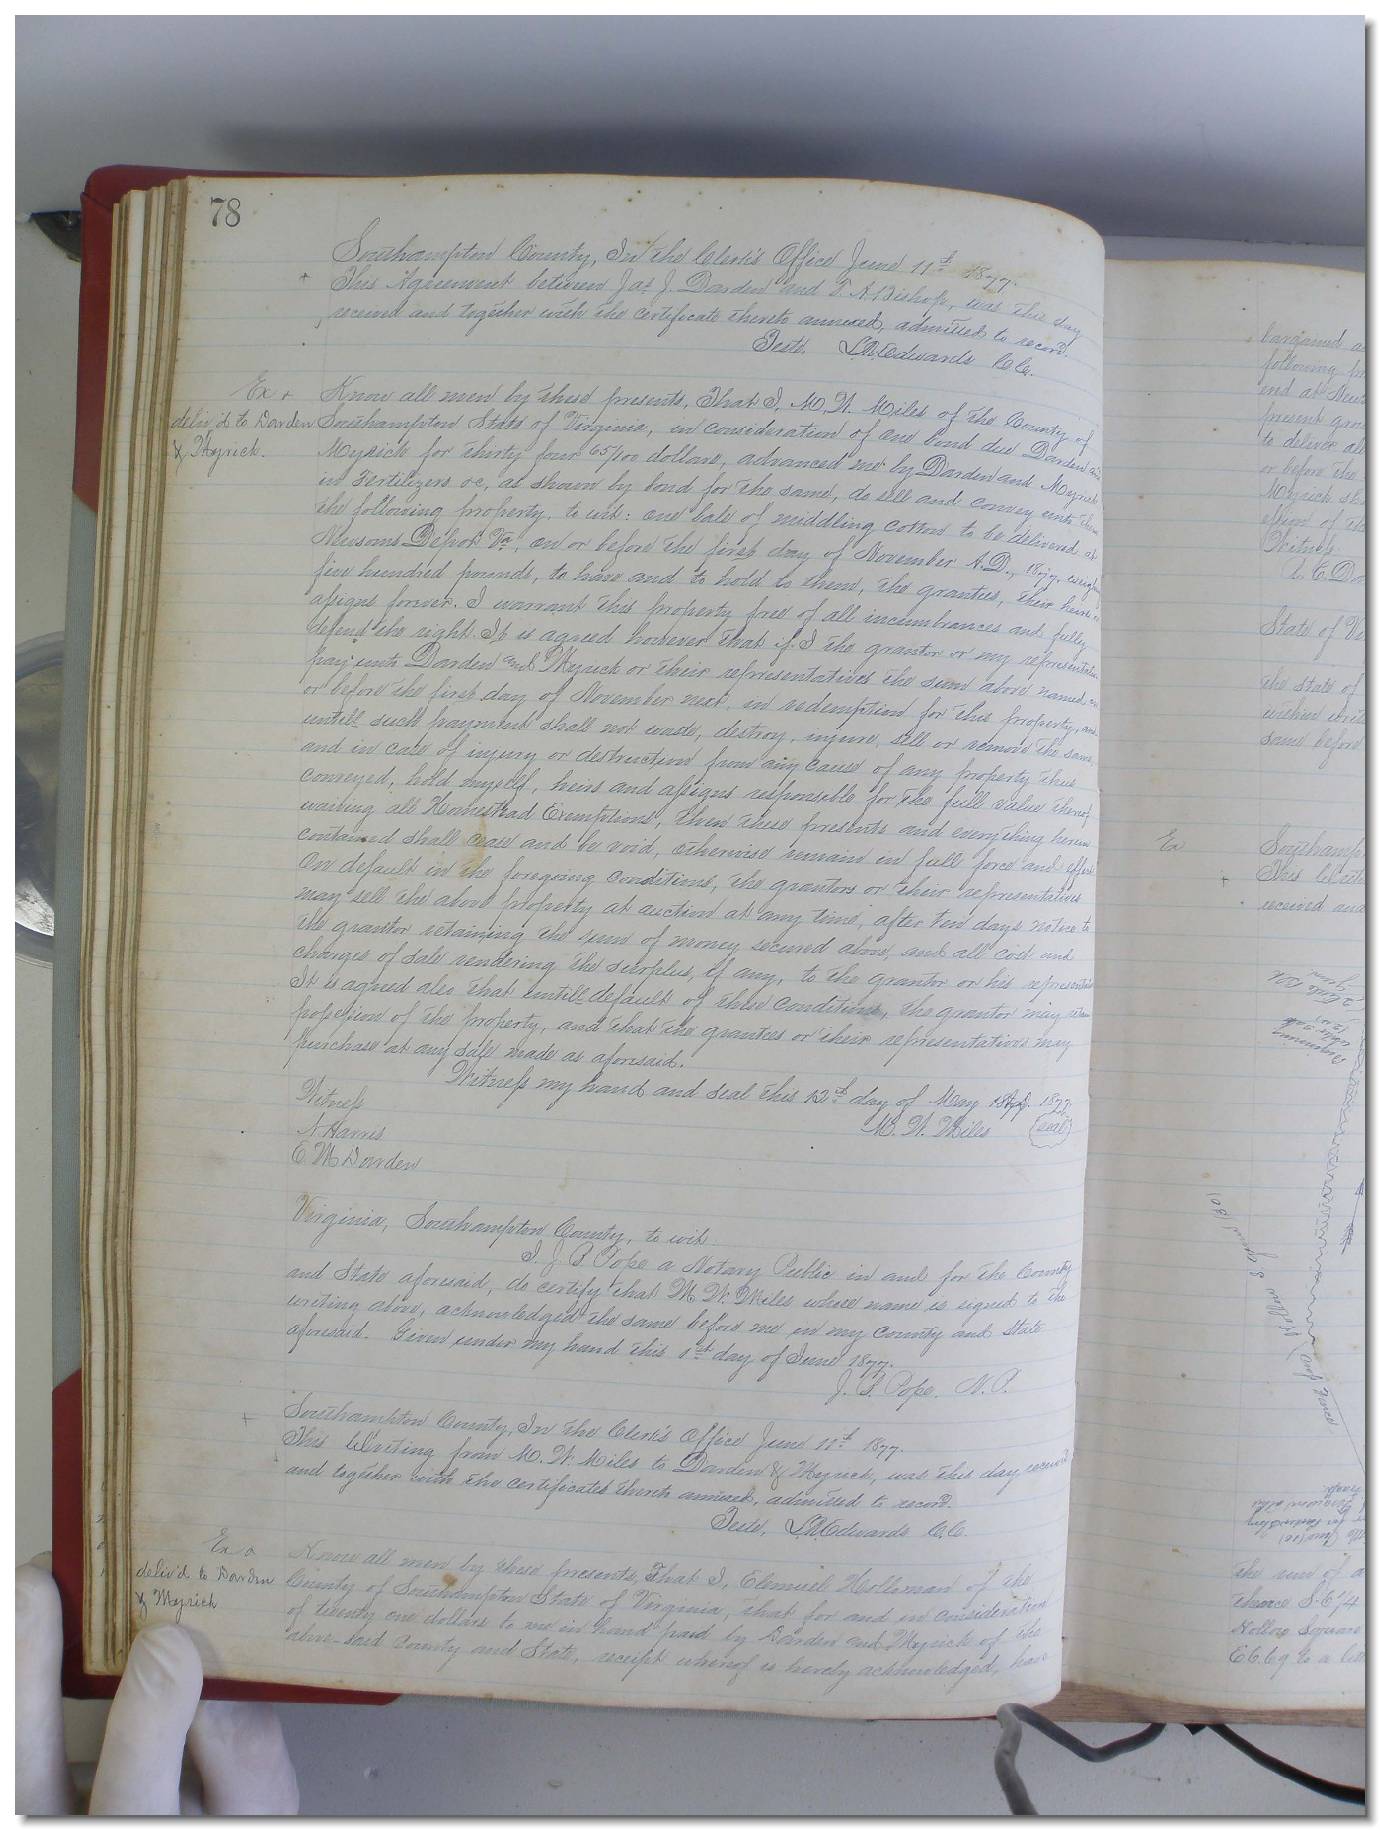 78
Southampton County, In the Clerk's Office June 11th 1877.
This Agreement between Jas J. Darden and T. A. Bishop, was this day
received and together with the certificate thereto annexed, admitted to record.
Teste, L.R. Edwards C.C.
Ex
deliv'd to Darden
& Myrick.
Know all men by these presents, That I, M. W. Miles of the County of
Southampton State of Virginia, in consideration of one bond due Darden and
Myrick for thirty four 65/100 dollars, advanced me by Darden and Myrick
in Fertilizers &c, as shown by bond for the same, do sell and convey unto them
the following property, to wit: one bale of middling cotton to be delivered at
Newsoms Depot Va, on or before the first day of November A.D., 1877, weighing
five hundred pounds, to have and to hold to them, the grantees, their heirs or
assigns forever. I warrant this property free of all incumbrances and fully
defend the right. It is agreed however that if I the grantor or my representatives
pay unto Darden and Myrick or their representatives the sum above named, on
or before the first day of November next, in redemption for this property, and
untill such payment shall not waste, destroy, injure, sell or remove the same,
and in case of injury or destruction from any cause of any property thus
conveyed, hold myself, heirs and assigns responsible for the full value thereof
waiving all Homestead Exemptions, then these presents and everything herein
contained shall cease and be void, otherwise remain in full force and effect.
On default in the foregoing conditions, the grantors or their representatives
may sell the above property at auction at any time, after ten days notice to
the grantor retaining the sum of money secured above, and all cost and
charges of sale rendering the surplus, if any, to the grantor or his representatives
It is agreed also that untill default of these conditions, the grantor may retain
possession of the property, and that the grantees or their representatives may
purchase at any sale made as aforesaid.
Witness my hand and seal this 12th day of May 1877.
Witness
M. W. Miles (seal)
N. Harris
E M Darden
Virginia, Southampton County, to wit
I, J. P. Pope a Notary Public in and for the County
and State aforesaid, do certify that M. W. Miles whose name is signed to the
writing above, acknowledged the same before me in my county and State
aforesaid. Given under my hand this 1st day of June 1877.
J. P. Pope. N.P.
Southampton County, In the Clerk's Office June 11th 1877.
This Writing from M. W. Miles to Darden & Myrick, was this day received
and together with the certificates thereto annexed, admitted to record.
Teste, L.R. Edwards C.C.
Ex
deliv'd to Darden
& Myrick
Know all men by these presents, That I, Elemuel Holleman of the
County of Southampton State of Virginia, that for and in consideration
of twenty one dollars to me in hand paid by Darden and Myrick of the
above-said County and State, receipt whereof is hereby acknowledged, have
bargained
following
end at
present
to deliver all
or before the
Myrick
Witness
State of
the State of
within
same before
Ex
Southamp
This
received and
the sum of
thence S. E 1/4
Hollow Square